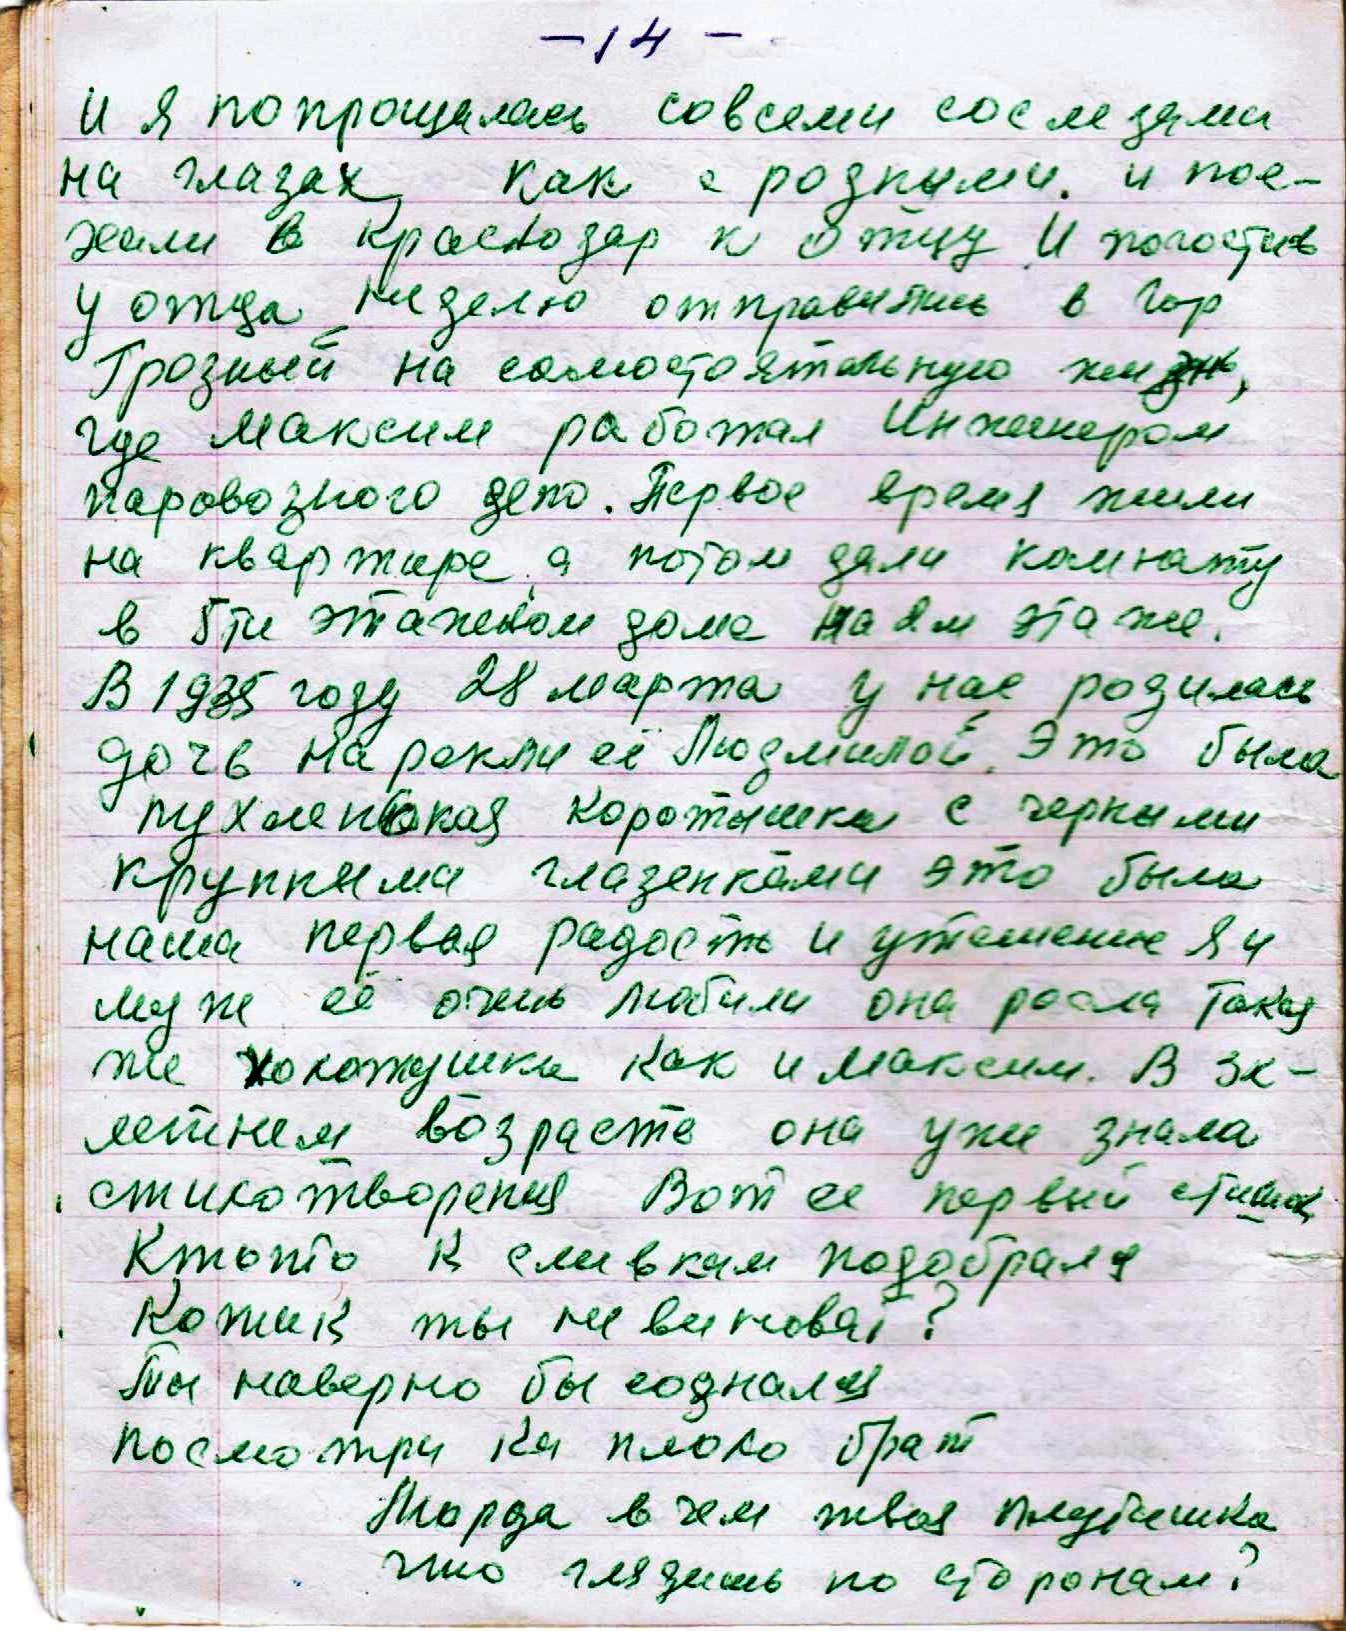 - 14 -
И я попрощалась совсеми сослезами
на глазах, как с родными. и пое-
хали в Краснодар к отцу И погостив
у отца неделю отправились в гор
Грозный на самостоятельную жизнь,
где Максим работал Инженером
паровозного депо. Первое время жили
на квартире, а потом дали комнату
в 5ти этажном доме на этаже.
В 1935 году 28 марта у нас родилась
дочь нарекли её Людмилой. Это была
пухленькая коротышка с черными
крупными глазенками это была
наша первая радость и утешение Я и
муж её очень любили она росла такая
же хохотушка как и Максим. В 3х-
летнем возрасте она уже знала
стихотворения Вот ее первый стишок
Ктото к сливкам подобрался
Котик ты не виноват?
Ты наверно бы сознался
посмотри ка плохо брат
Морда в чем твоя плутишка
что глядишь по сторонам?